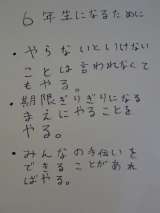 6年生になるために
・やらないといけない
ことは言われなくて
もやる。
・期限ぎりぎりになる
まえにやることを
やる。
・みんなの手伝いを
できることがあれ
ばやる。